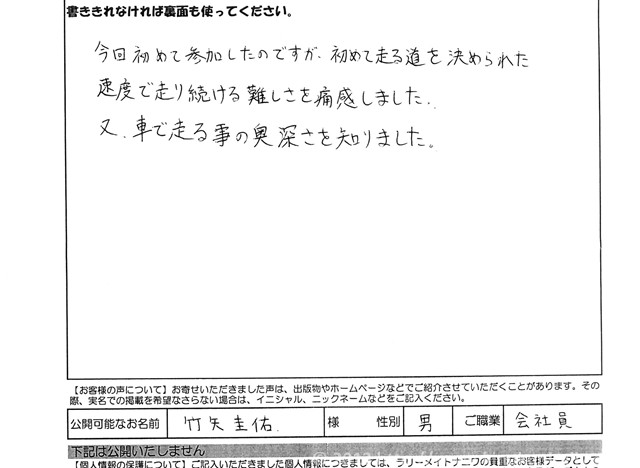 書ききれなければ裏面も使ってください。
今回初めて参加したのですが、初めて走る道を決められた
速度で走り続ける難しさを痛感しました。
又、車で走る事の奥深さを知りました。
【お客様の声について】お寄せいただきました声は、出版物やホームページなどでご紹介させていただくことがあります。その
際、実名での掲載を希望なさらない場合は、イニシャル、ニックネームなどをご記入ください。
公開可能なお名前 竹矢圭佑 様 性別 男 ご職業 会社員
下記は公開いたしません
【個人情報の保護について】ご記入いただきました個人情報につきましては、ラリーメイトナニワの貴重なお客様データとして